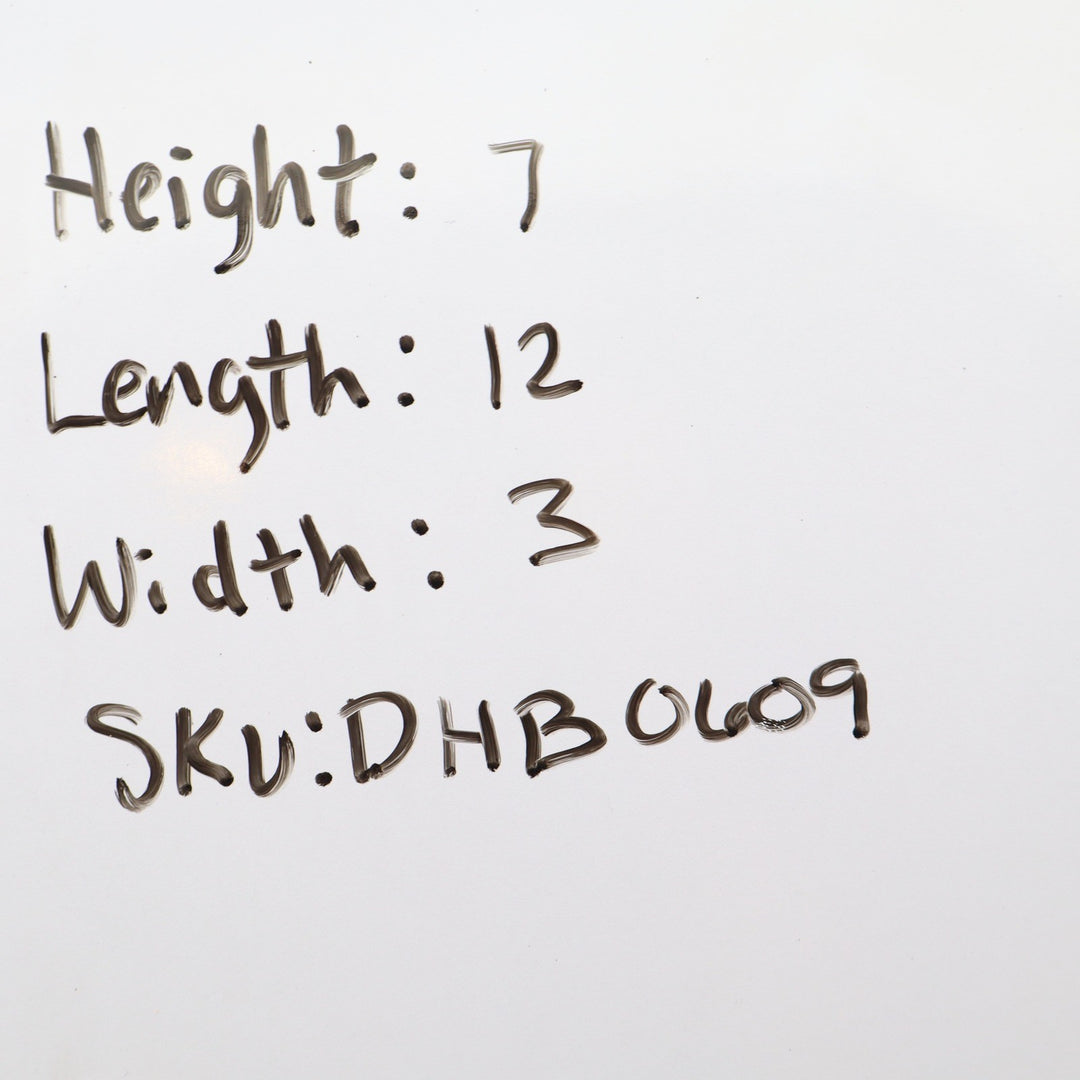 Height: 7
Length: 12
Width: 3
SKU: DHB0609